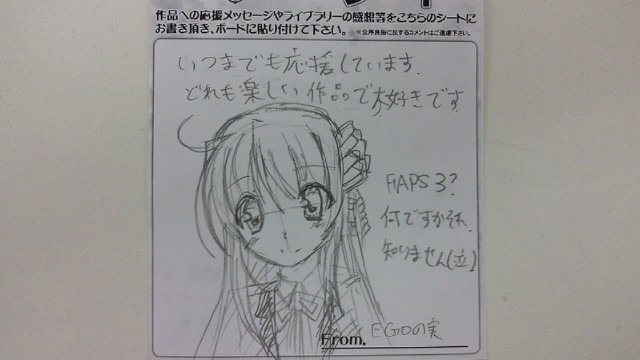 作品への応援メッセージやライブラリーの感想等をこちらのシートに
お書き頂き、ボードに貼り付けて下さい。 ※公序良俗に反するコメントはご遠慮下さい。
いつまでも応援しています.
どれも楽しい作品で大好きです.
FAPS3?
何ですかそれ.
知りません(泣)
From. EGOの実